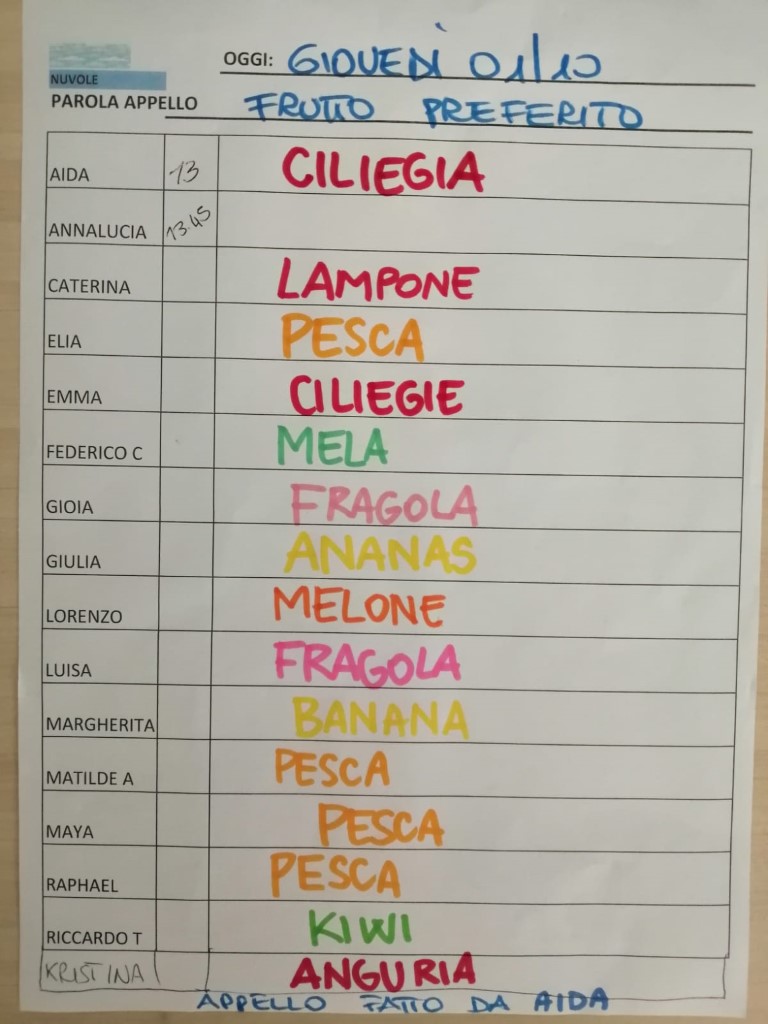 OGGI: GIOVEDÌ 01/10
NUVOLE
PAROLA APPELLO FRUTTO PREFERITO
AIDA 13 CILIEGIA
ANNALUCIA 13.45
CATERINA LAMPONE
ELIA PESCA
EMMA CILIEGIE
FEDERICO C MELA
GIOIA FRAGOLA
GIULIA ANANAS
LORENZO MELONE
LUISA FRAGOLA
MARGHERITA BANANA
MATILDE A PESCA
MAYA PESCA
RAPHAEL PESCA
RICCARDO T KIWI
KRISTINA ANGURIA
APPELLO FATTO DA AIDA